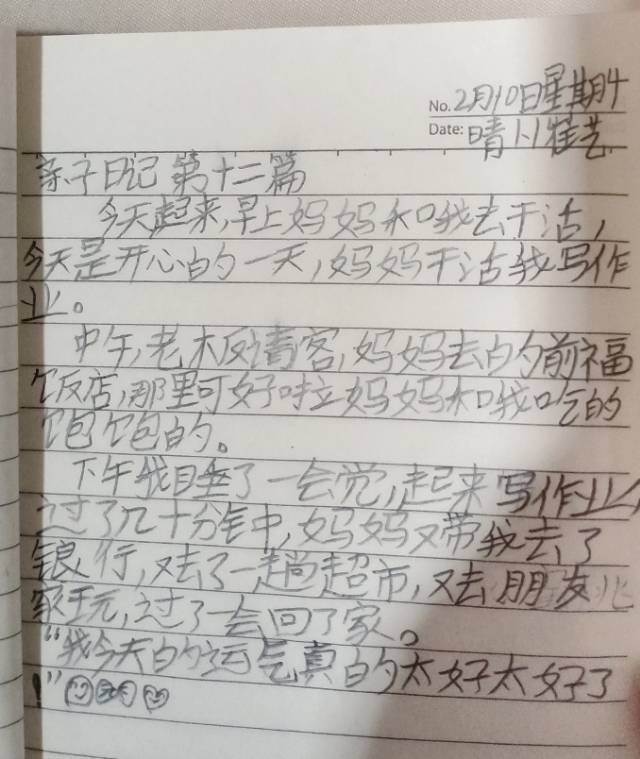 No. 2月10日星期4
Date: 晴 卜崔艺
亲子日记 第十二篇
今天起来,早上妈妈和我去干活,
今天是开心的一天,妈妈干活我写作
业。
中午,老板请客,妈妈去的前福
饭店,那里可好啦妈妈和我吃的
饱饱的。
下午我睡了一会觉,起来写作业,
过了几十分钟中,妈妈又带我去了
银行,又去了一趟超市,又去朋友
家玩,过了一会回了家。
“我今天的运气真的太好太好了
!”